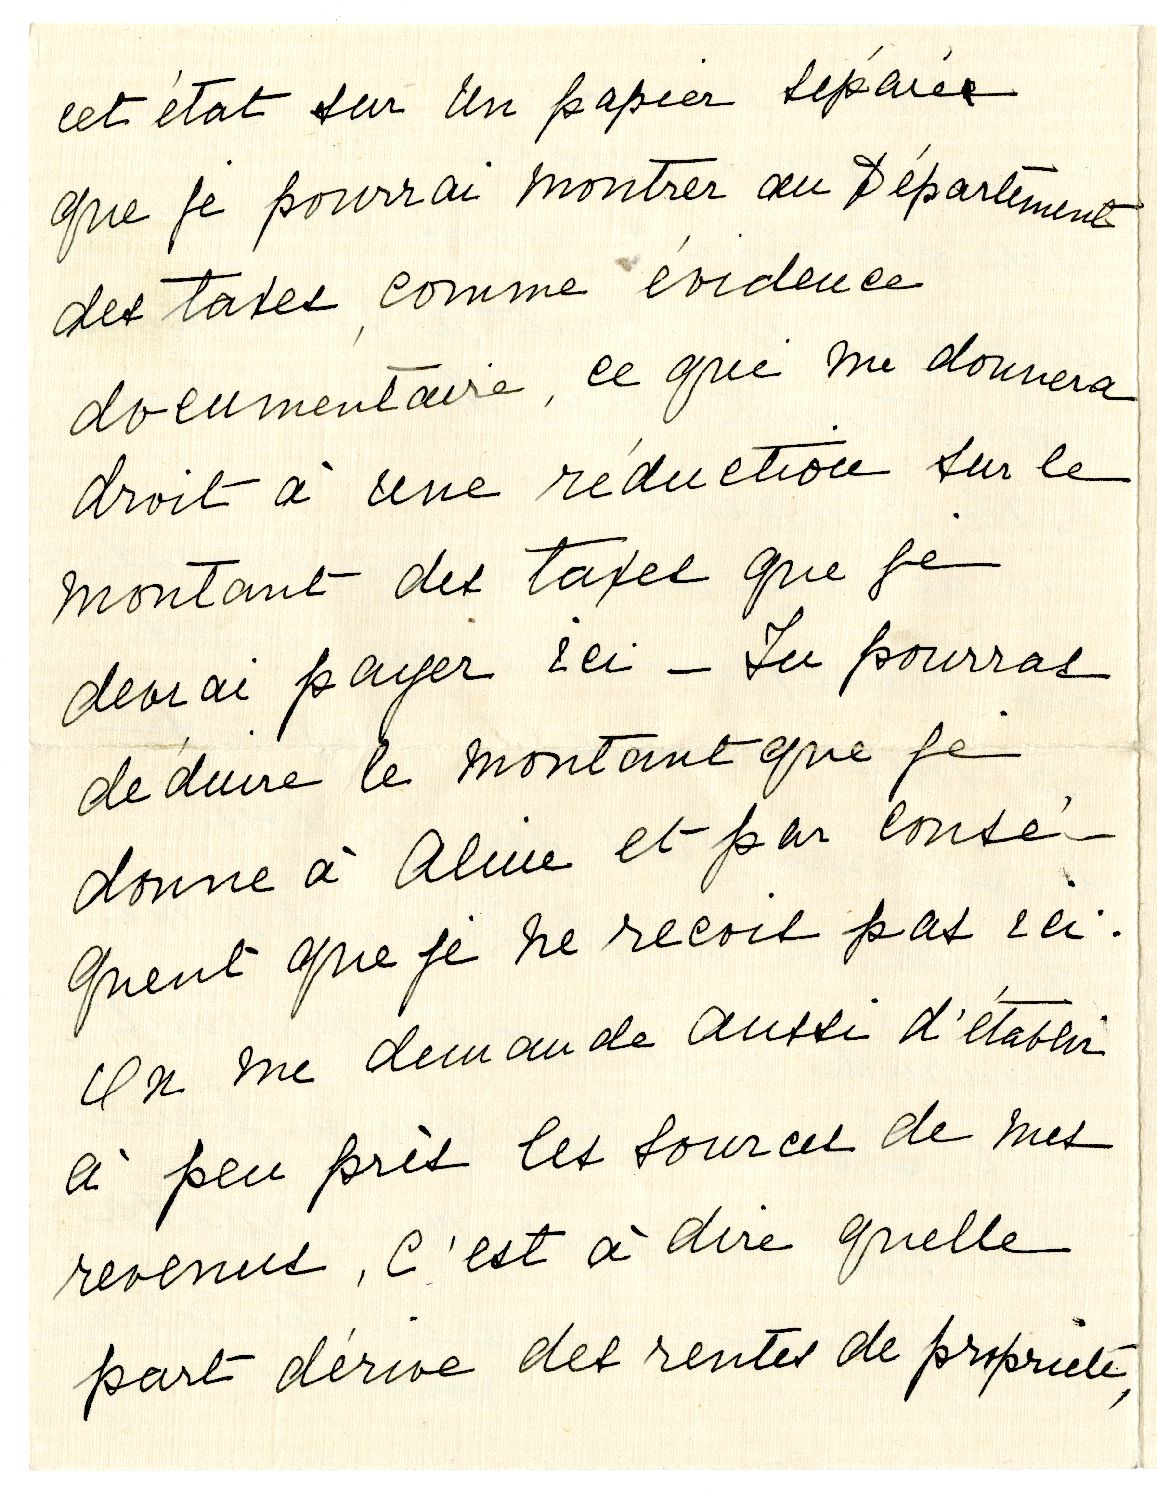 cet état sur un papier séparée
que je pourrai montrer au Département
des taxes, comme évidence
documentaire, ce qui me donnera
droit à une réduction sur le
montant des taxes que je
devrai payer ici – Tu pourras
déduire le montant que je
donne à Aline et par consé-
quent que je ne recois pas ici.
On me demande aussi d'établir
à peu près les sources de mes
revenus, c'est à dire quelle
part dérive des rentes de propriété,